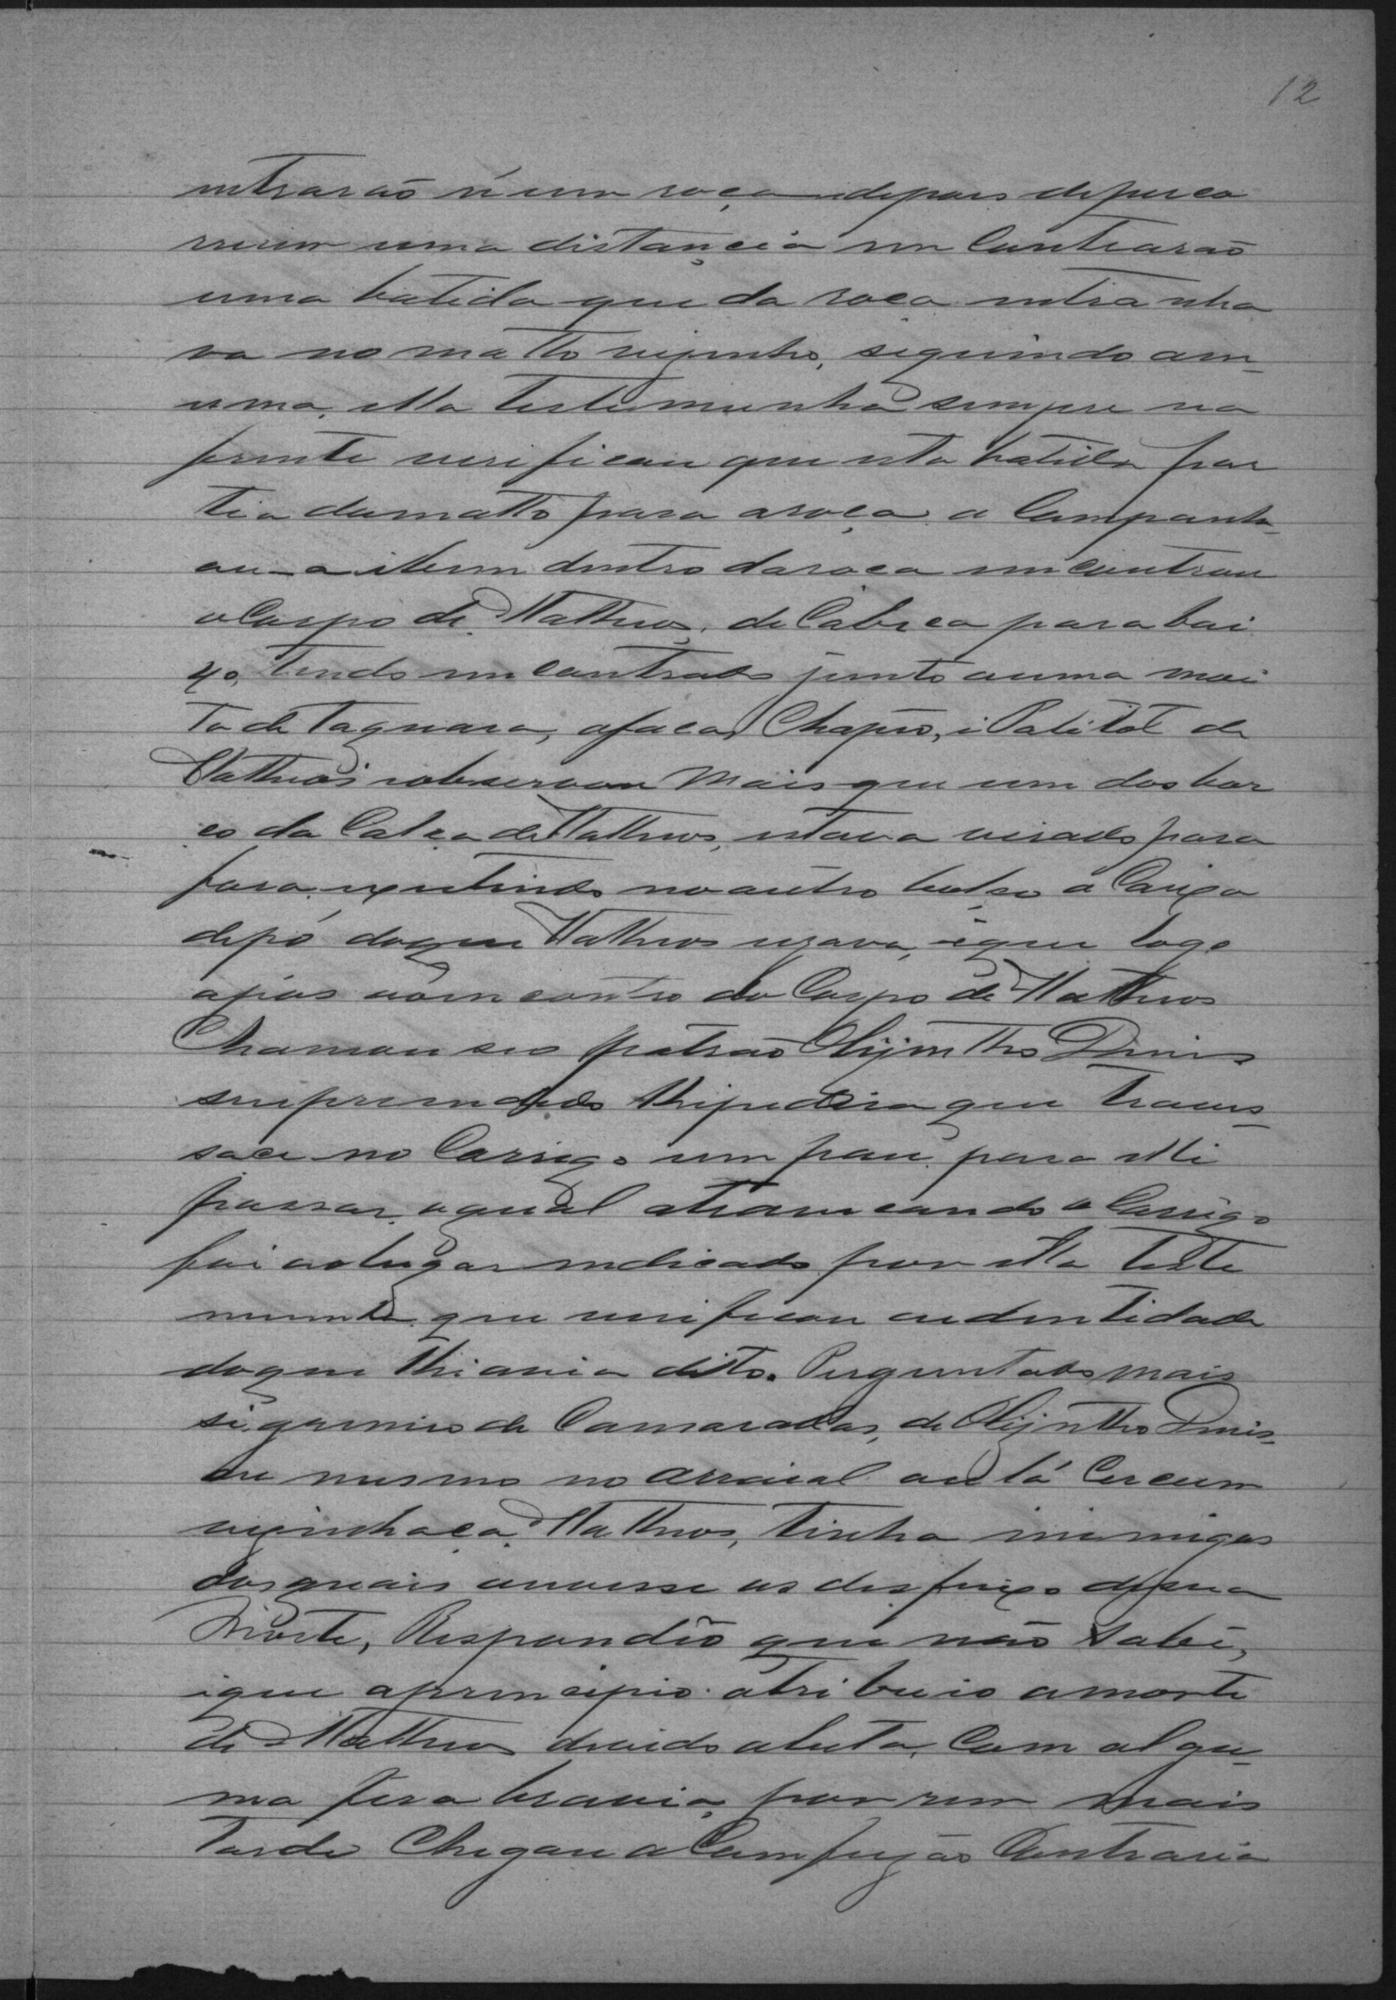 12
entrarão n'um roça i depois de perco
rrerem uma distancia em Contrarão
uma batida que da roça entranha
va no matto vizinho, seguindo am-
esma, ella testemunha sempre na
frente verificou que esta batida par
tia do matto para a roça. a Companh-
ou-a item dentro da roça encontrou
o Corpo de Matheos, de Cabeça para bai
xo, tendo em contrado junto a uma moi
ta de taquara, a faca, Chapeo, i Palitot de
Matheos i observou Mais que um dos bor
ço da Calça de Matheos, estava virado para
fora, existindo no outro bolço a Caixa
de pó do que Matheos uzava, i que logo
apois o em contro do Corpo de Matheos
Chamou seo patrão Olijntho Diniz
surprendido lhi pedira que traves-
sace no Corrigo um pau para elli
passar, o qual atravecando o Corrigo
foi ao lugar indicado por ella teste
munha que verificou a identidade
do que lhi avia dito. Perguntado mais
si garmiro de Camaradas, de Olijntho Dinis,
ou mesmo no arraial ou lá Cercum
vizinhaça Matheos, tinha inimigos
dos quais ouvesse us desfeixo de sua
Morte, Respondêo que não sabe,
i que a principio atribuio a morte
de Matheos divido a luta Com algu-
ma fera bravia, porrem mais
tarde Chegou a Comfuzão Contraria